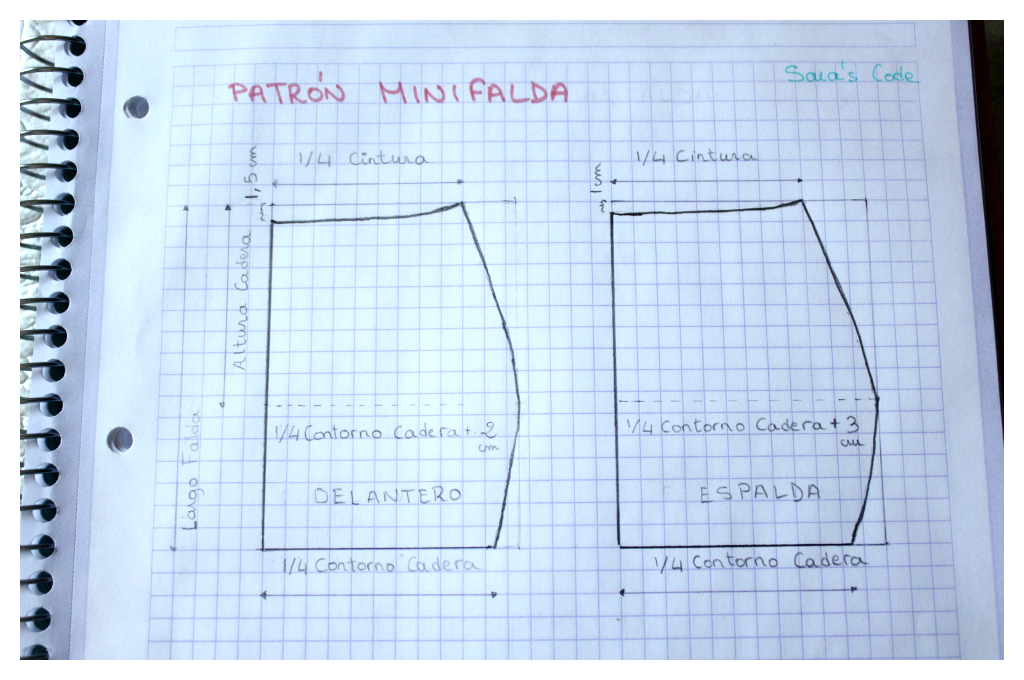 Sara's Code
PATRÓN MINIFALDA
1/4 Cintura
1,5 cm
Altura Cadera
Largo Falda
1/4 Contorno Cadera + 2
cm
DELANTERO
1/4 Contorno Cadera
1/4 Cintura
1 cm
1/4 Contorno Cadera + 3
cm
ESPALDA
1/4 Contorno Cadera